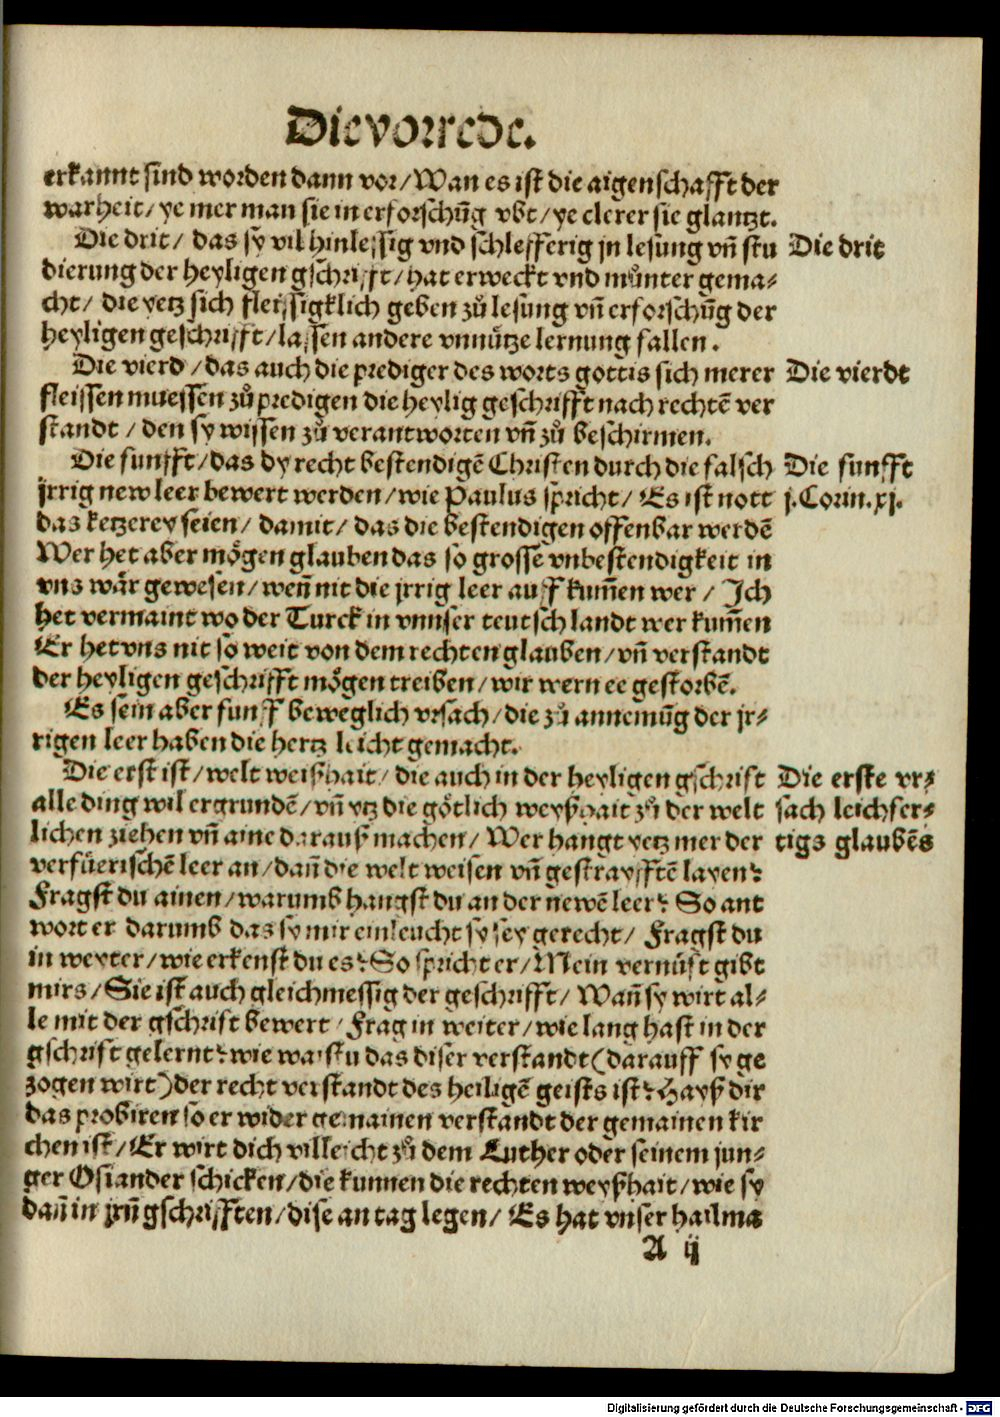 Die vorrede.
erkannt sind worden dann vor/ Wan es ist die aigenschafft der
warheit/ ye mer man sie in erforschũg vbt/ ye clerer sie glantzt.
Die drit/ das sy vil hinlessig vnd schlefferig jn lesung vñ stu
Die drit
dierung der heyligen gschrifft/ hat erweckt vnd můnter gema-
cht/ die yetz sich fleissigklich geben zů lesung vñ erforschũg der
heyligen geschrifft/ lassen andere vnnützelernung fallen.
Die vierd/ das auch die prediger des worts gottis sich merer
Die vierdt
fleissen muessen zů predigen die heylig geschrifft nach rechtẽ ver
standt/ den sy wissen zů verantworten vñ zů beschirmen.
Die funfft/ das dy recht bestendigẽ Christen durch die falsch
Die funfft
jrrig new leer bewert werden/ wie Paulus spricht/ Es ist nott
j. Corin. xj.
das ketzerey seien/ damit/ das die bestendigen offenbar werdẽ
Wer het aber mögen glauben das so grosse vnbestendigkeit in
vns wär gewesen/ weñ nit die jrrig leer auff kum̃en wer/ Ich
het vermaint wo der Turck in vnnser teutsch landt wer kum̃en
Er het vns nit so weit von dem rechten glauben/ vñ verstandt
der heyligen geschrifft mögen treiben/ wir wern ee gestorbẽ.
Es sein aber funff beweglich vrsach/ die zů annemũg der jr-
rigen leer haben die hertz leicht gemacht.
Die erst ist/ welt weißhait/ die auch in der heyligen gschrift
Die erste vr-
alle ding wil ergrundẽ/ vñ ytz die götlich weyßhait zů der welt
sach leichfer-
lichen ziehen vñ aine darauß machen/ Wer hangt yetz mer der
tigs glaubẽs
verfüerischẽ leer an/ dañ die welt weisen vñ gestrayfftẽ layen?
Fragst du ainen/ warumb hangst du an der newẽ leer? So ant
wort er darumb das sy mir einleucht sy sey gerecht/ Fragst du
in weyter/ wie erkenst du es? So spricht er/ Mein vernüft gibt
mirs/ Sie ist auch gleichmessig der geschrifft/ Wañ sy wirt al-
le mit der gschrift bewert/ Frag in weiter/ wie lang hast in der
gschrift gelernt? wie waistu das diser verstandt (darauff sy ge
zogen wirt) der recht verstandt des heiligẽ geists ist? Hayß dir
das probiren so er wider gemainen verstandt der gemainen kir
chen ist/ Er wirt dich villeicht zů dem Luther oder seinem jun-
ger Osiander schicken/ die kunnen die rechten weyßhait/ wie sy
dañ in jrñ gschrifften/ dise an tag legen/ Es hat vnser hailma
A ij
Digitalisierung gefördert durch die Deutsche Forschungsgemeinschaft - DFG